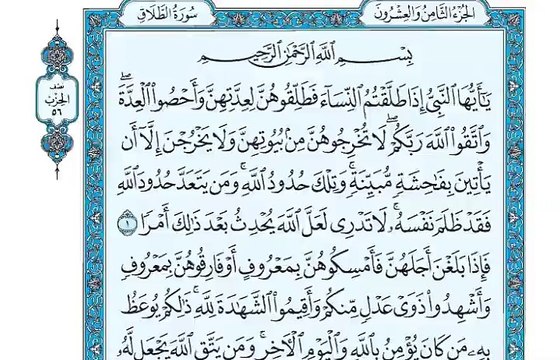 الجزء الثامن والعشرون
سورة الطلاق
نصف
الحزب
٥٦
بِسْمِ ٱللَّهِ ٱلرَّحْمَٰنِ ٱلرَّحِيمِ
يَٰٓأَيُّهَا ٱلنَّبِىُّ إِذَا طَلَّقْتُمُ ٱلنِّسَآءَ فَطَلِّقُوهُنَّ لِعِدَّتِهِنَّ وَأَحْصُوا۟ ٱلْعِدَّةَ ۖ
وَٱتَّقُوا۟ ٱللَّهَ رَبَّكُمْ ۖ لَا تُخْرِجُوهُنَّ مِنۢ بُيُوتِهِنَّ وَلَا يَخْرُجْنَ إِلَّآ أَن
يَأْتِينَ بِفَٰحِشَةٍ مُّبَيِّنَةٍ ۚ وَتِلْكَ حُدُودُ ٱللَّهِ ۚ وَمَن يَتَعَدَّ حُدُودَ ٱللَّهِ
فَقَدْ ظَلَمَ نَفْسَهُۥ ۚ لَا تَدْرِى لَعَلَّ ٱللَّهَ يُحْدِثُ بَعْدَ ذَٰلِكَ أَمْرًا ١
فَإِذَا بَلَغْنَ أَجَلَهُنَّ فَأَمْسِكُوهُنَّ بِمَعْرُوفٍ أَوْ فَارِقُوهُنَّ بِمَعْرُوفٍ
وَأَشْهِدُوا۟ ذَوَىْ عَدْلٍ مِّنكُمْ وَأَقِيمُوا۟ ٱلشَّهَٰدَةَ لِلَّهِ ۚ ذَٰلِكُمْ يُوعَظُ
بِهِۦ مَن كَانَ يُؤْمِنُ بِٱللَّهِ وَٱلْيَوْمِ ٱلْـَٔاخِرِ ۚ وَمَن يَتَّقِ ٱللَّهَ يَجْعَل لَّهُۥ